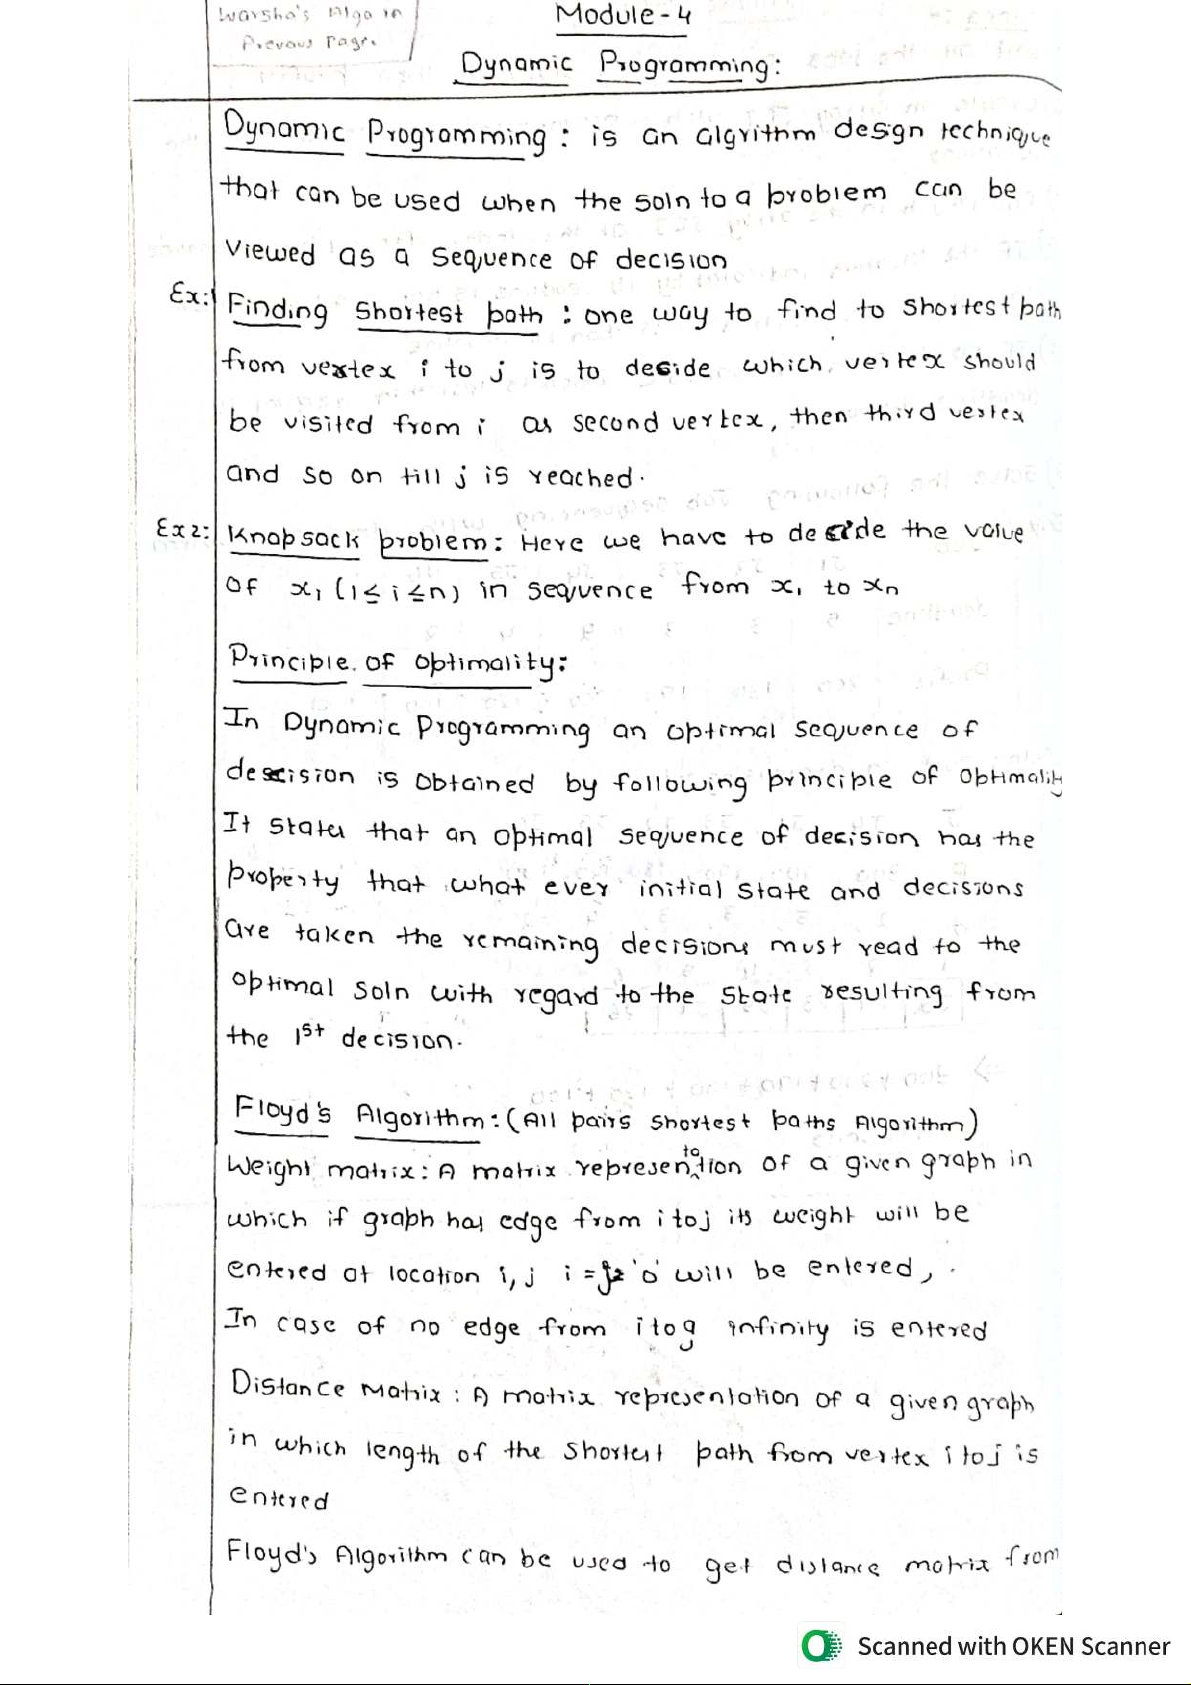 Warsha's Algo in
Prevous Page.
Module-4
Dynamic Programming:
Dynamic Programming: is an algrithm design technique
that can be used when the soln to a problem can be
viewed as a sequence of decision
Ex: Finding Shortest path : one way to find to shortest path
from vertex i to j is to deside which vertex should
be visited from i as second vertex, then third vertex
and so on till j is reached.
Ex2: Knapsack problem: Here we have to decide the value
of xi (1≤i≤n) in sequence from x1 to xn
Principle of optimality:
In Dynamic Programming an optimal sequence of
descision is obtained by following principle of optimality
It states that an optimal sequence of decision has the
property that what ever initial state and decisions
are taken the remaining decisions must read to the
optimal soln with regard to the state resulting from
the 1st decision.
Floyd's Algorithm: (All pairs shortest paths Algorithm)
Weight matrix: A matrix representation of a given graph in
which if graph has edge from i to j its weight will be
entered at location i, j i = j '0' will be entered,
In case of no edge from i to g infinity is entered
Distance Matrix : A matrix representation of a given graph
in which length of the shortest path from vertex i to j is
entered
Floyd's Algorithm can be used to get distance matrix from
Scanned with OKEN Scanner